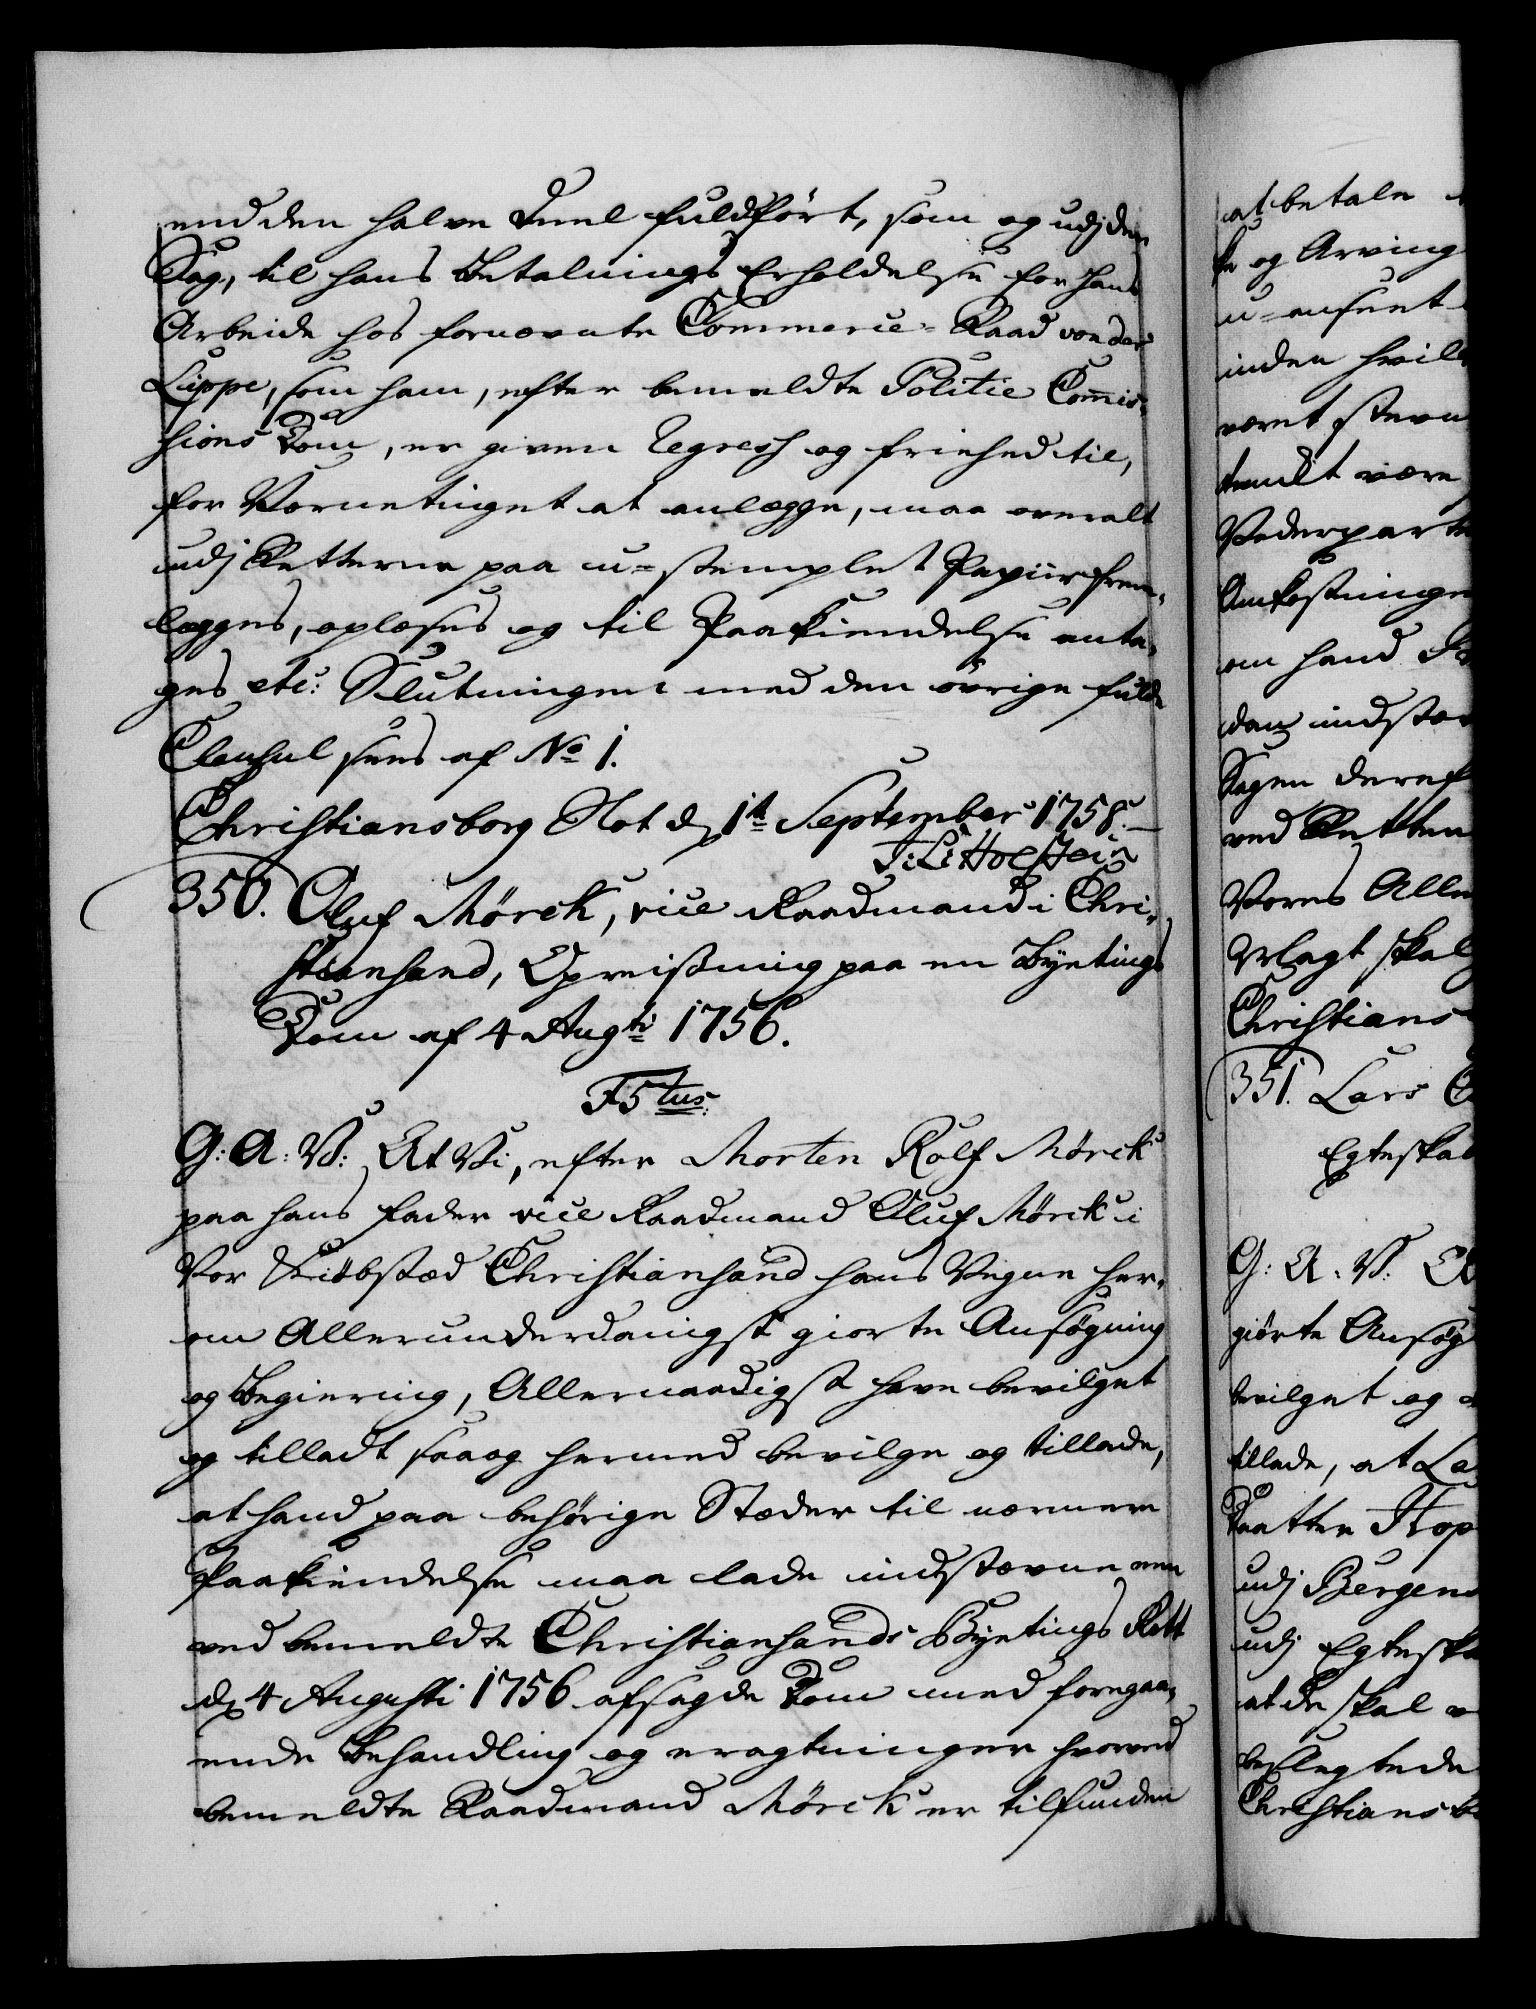 end den halve Deel fuldført, som og udj den
Sag, til hans Betalnings Erholdelse for hans
Arbeide hos fornævnte Commerce-Raad von der
Lippe, som ham, efter bemeldte Politie Commis-
sions Dom, er given Regress og friehed til,
for Vornetinget at anlægge, maa overalt
udj Retterne paa u-stemplet Papiir frem-
lægges, oplæses og til Paakiendelse anta-
ges etc: Slutningen med den øvrige fulde
Clausul sees af No 1.
Christiansborg Slot d 1t September 1758.
J: L: Holstein
350. Oluf Mørck, vice Raadmand i Chri-
stiansand, Opreisning paa en Byetings
Dom af 4 Augti 1756.
F5tus.
G: A: V: At Vi, efter Morten Rolf Mørck
paa hans Fader vice Raadmand Oluf Mørck i
Vor Kiøbstæd Christiansand hans Vegne her-
om Allerunderdanigst giorte Ansøgning
og Begiering, Allernaadigst have bevilget
og tilladt saa og hermed bevilge og tillade,
at hand paa behørige Stæder til nærmere
Paakiendelse maa lade indstævne een
ved bemeldte Christiansands Byetings Rett
d 4 Augusti 1756 afsagde Dom med foregaa-
ende Behandling og eragtninger hvorved
bemeldte Raadmand Mørck er tilfunden
at betale
og Arving
u-anseet
inden hvil
været stevn
kundt være
Vederpart
Omkostninge
om hand
indstæv
Sagen deref
ved Retten
Vores Alle
Christians
351. Lars
Egteskab
G: A: V:
giørte Ansøg
bevilget og
tillade, at La
udj Bergens
udj Egteska
at de skal
beslegtede
Christiansb